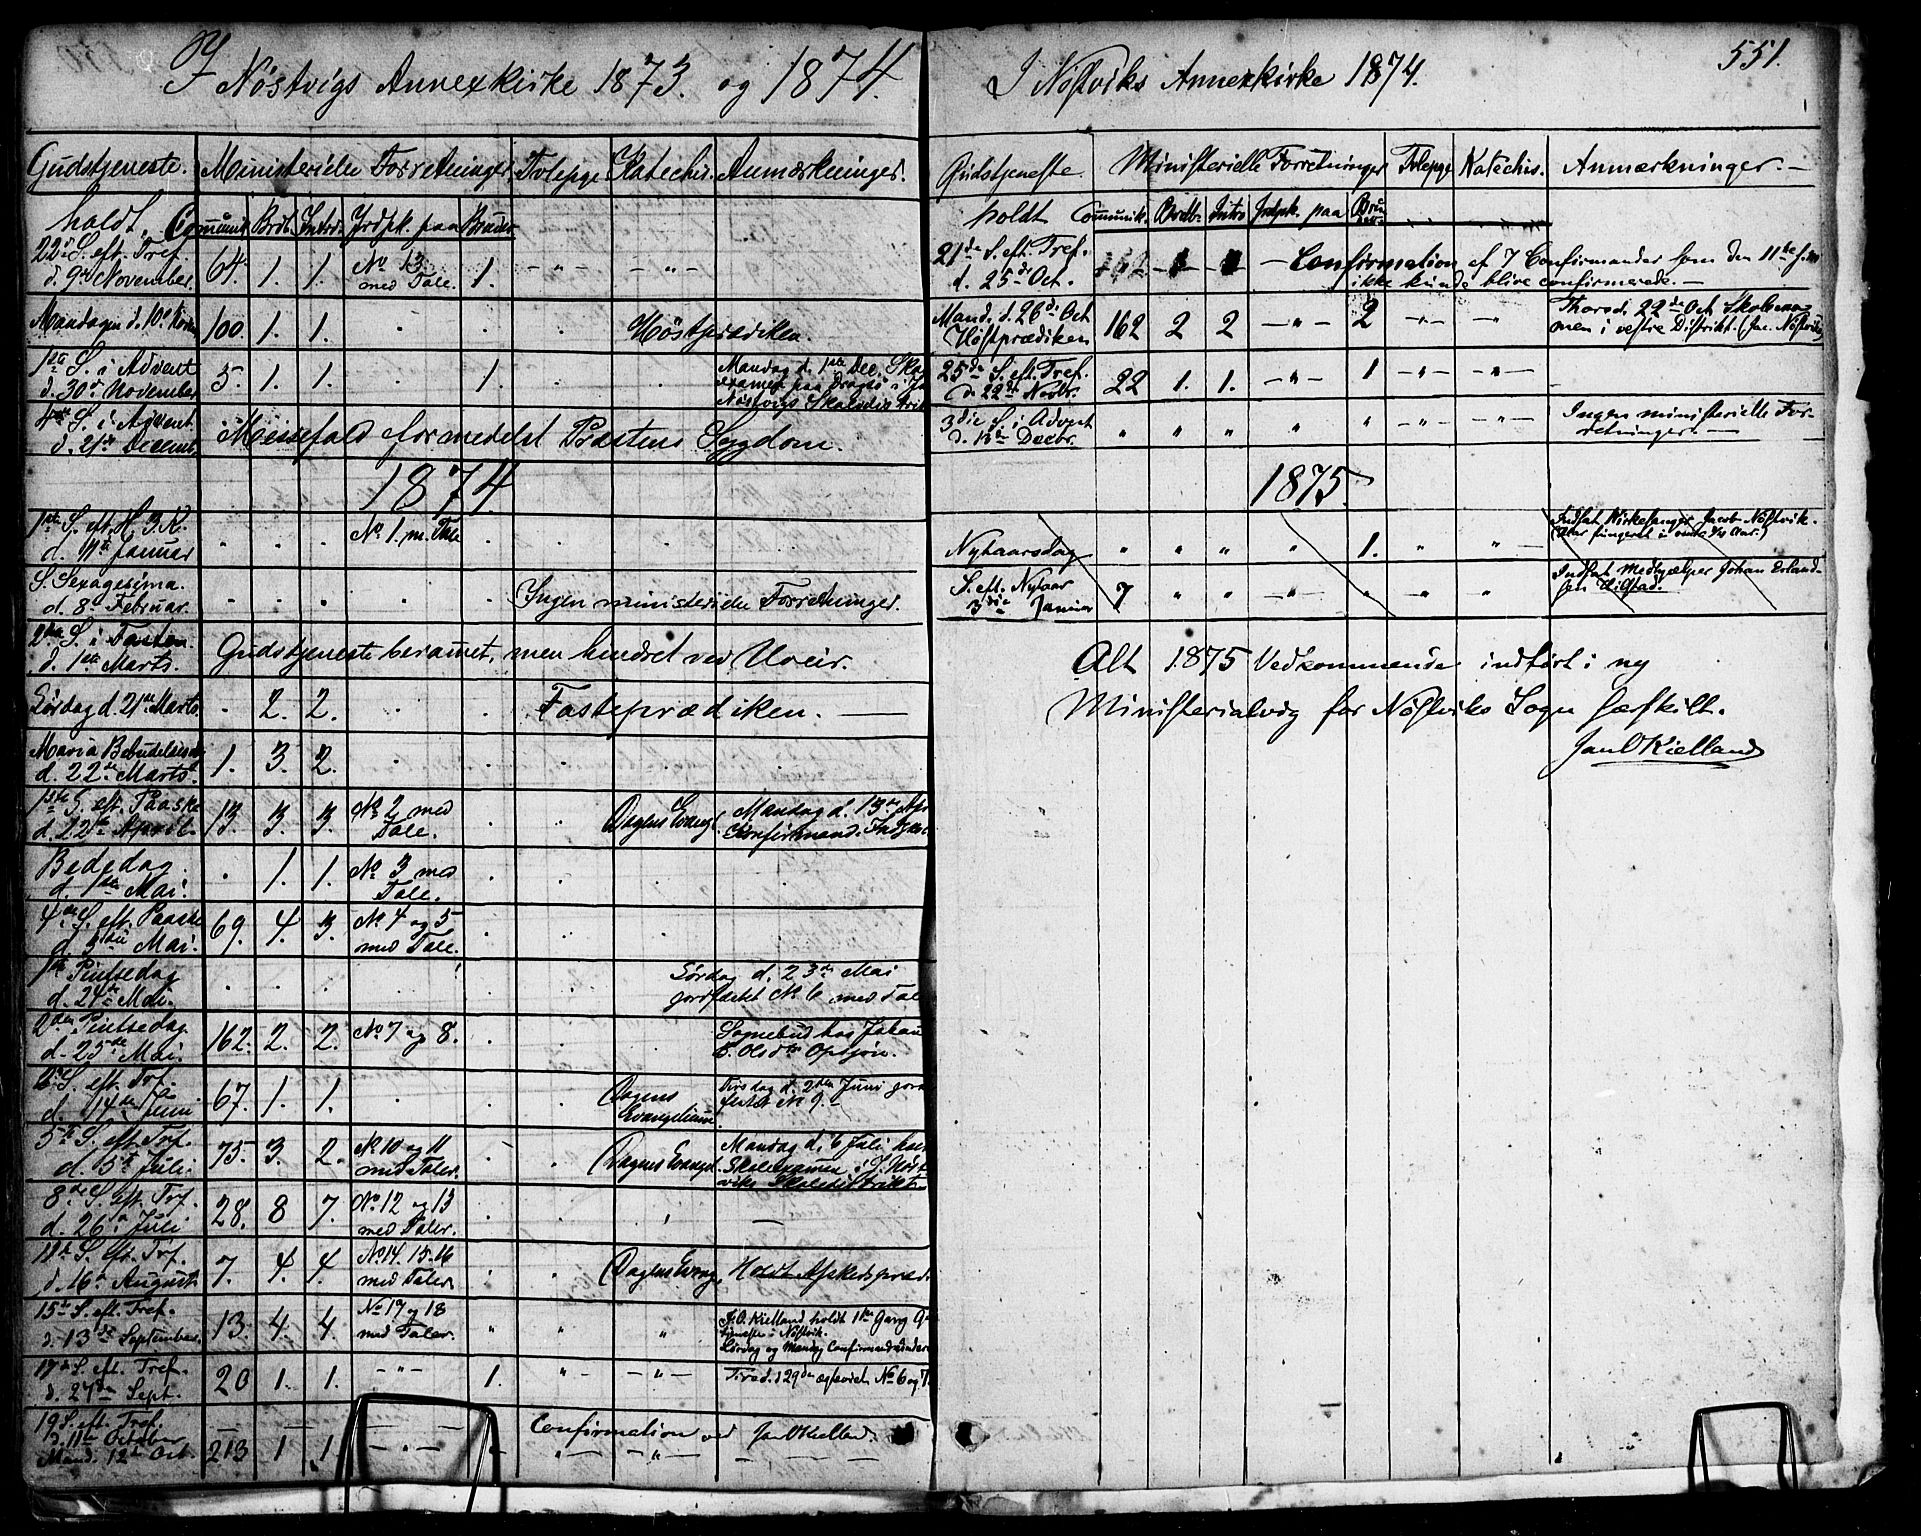 I Nöstvigs Annexkirke 1873. og 1874.
Gudstjeneste. Ministerielle Forretninger. Trolepge Katechis. Anmærkninger.
holdt. Communic. Brdb. Introd. Jrdpk. paa Bruder
22de S. eft. Tref.
d. 9de November. 64. 1. 1. No 13. med Tale. 1. - " - - " -
Mandagen d. 10de Nov. 100. 1. 1. Höstprædiken.
1ste S. i Advent
d. 30de November 5. 1. 1. 1. Mandag d. 1ste Dec. Skoleexamen paa
Nöstvigs Skoledistrikt
4de S. i Advent
d. 21de Decemb. Messefald formedelst Præstens Sygdom.
1874
1ste S. eft. H. 3 K.
d. 11te Januar No 1. m. Tale
S. Sexagesima.
d. 8de Februar. Ingen ministerielle Forretninger.
2den S. i Fasten
d. 1ste Marts. Gudstjeneste berammet, men hindret ved Uveir.
Lördag d. 21de Marts. 2. 2. Fasteprædiken.
Maria Bebudelsesdag
d. 22de Marts. 1. 3. 2.
1ste S. eft. Paaske
d. 12te April. 13. 3. 3. No 2 med Tale. Dagens Evang. Mandag d. 13de Apr.
Confirmand. Indskr.
Bededag
d. 1ste Mai. 1. 1. No 3 med Tale.
4de S. eft. Paaske
d. 3die Mai. 69. 4. 3. No 4 og 5 med Tale.
1ste Pintsedag
d. 24de Mai. Lördag d. 23de Mai
jordfæstet No 6 med Tale
2den Pintsedag
d. 25de Mai. 162. 2. 2. No 7 og 8. Sognebud hos Johan
E. Olsdtr Opsjön.
2den S. eft. Trf.
d. 14de Juni 67. 1. 1. Dagens Evangelium. Tirsdag d. 2den Juni jord-
fæstet No 9.
5te S. eft. Trf.
d. 5te Juli. 75. 3. 2. No 10 og 11 med Taler. Dagens Evangel. Mandag d. 6 Juli
Skoleexamen i J. Nöst-
viks Skoledistrikt
8de S. eft. Trf.
d. 26de Juli 28. 8 7. No 12 og 13 med Taler.
11te S. eft. Trf.
d. 16de August 7. 4. 4. No 14. 15. 16 med Taler. Dagens Evang. Holdt Afskedspræd.
15de S. eft. Tref.
d. 13de September. 13. 4. 4. No 17 og 18 med Taler. " " " J. O. Kielland holdt 1ste Gang
i Nöstvik.
Lördag og Mandag
17de S. eft. Tref.
d. 27de Sept. 20 1. 1. - " - 1. - " - - " - Tirsd. d. 29de No 6 og 7.
19 S. eft. Tref.
d. 11te October Confirmation ved Jan O Kielland.
Mand. 12te Oct. 213 1 1. - " - - " - - " -
551.
I Nöstviks Annexkirke 1874.
Gudstjeneste Ministerielle Forretninger Trolepge Katechis. Anmærkninger. —
holdt Communik. Brdb. Intro Jrdpk. paa
21de S. eft. Tref.
d. 25de Oct. Confirmation af 7 Confirmander som den 11te
ikke kunde blive confirmerede. —
Mand. d. 26de Oct
(Höstprædiken 162 2 2 — " — 2 - " - - " - Thorsd. 22de Oct
i vestre Distrikt.
25de S. eft. Tref.
(d. 22de Novbr. 22 1. 1. — " — 1 - " - - " -
3die S. i Advent
d. 13de Decbr. " " " " " - " - - " - Ingen ministerielle For-
retninger. —
1875.
Nytaarsdag " " " " 1. " " Indsat Kirkesanger Jacob Nöstvik.
S. eft. Nytaar
3die Januar 7 " " - " - " " " Indsat Medhjælper Johan Erland-
sen
Alt 1875 Vedkommende indfört i ny
Ministerialbog for Nöstviks Sogn særskilt.
Jan O Kielland